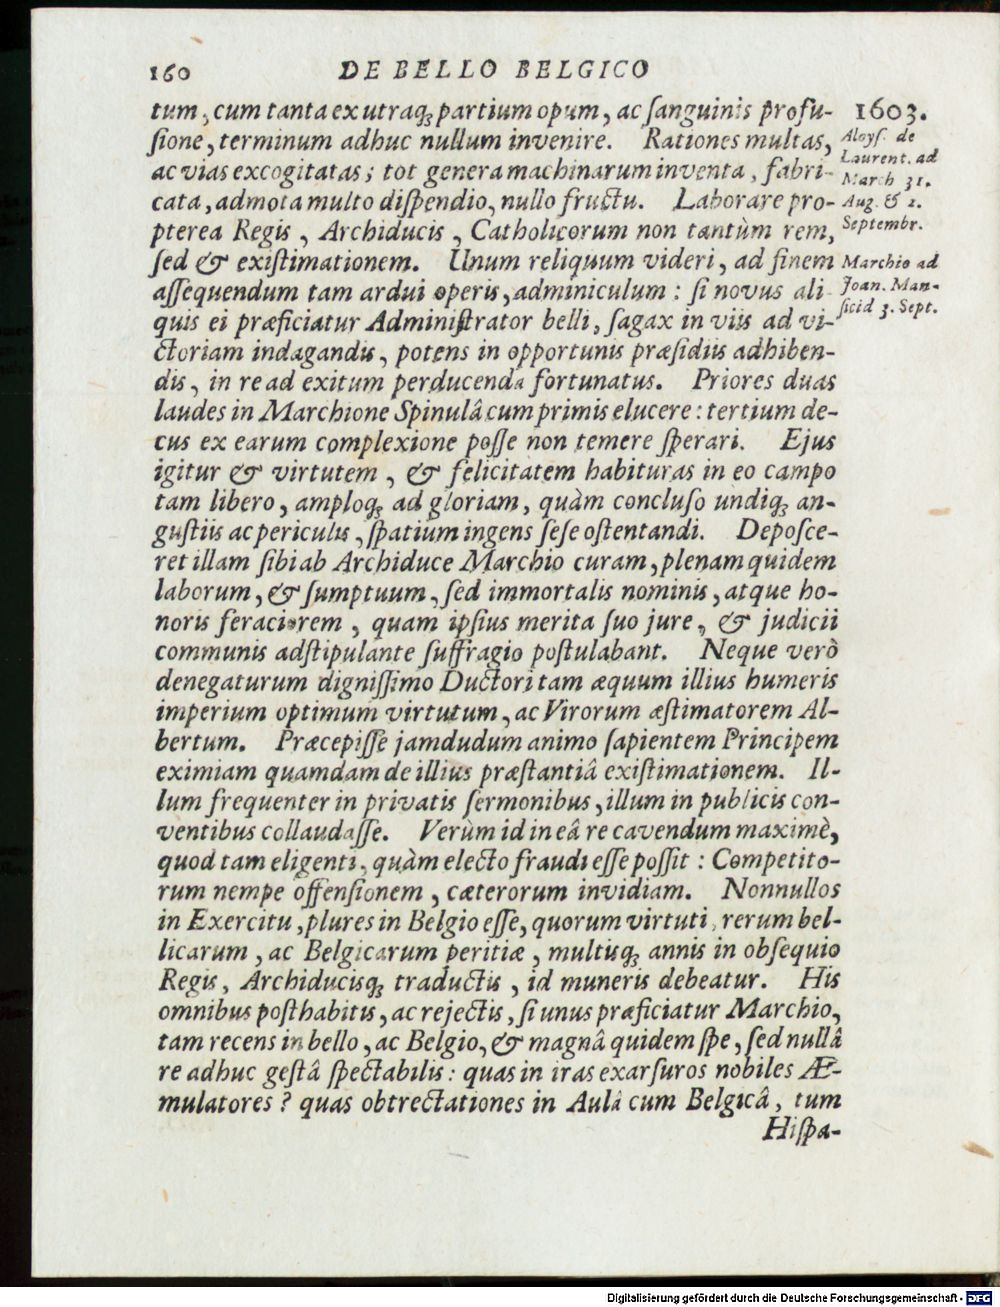 160 DE BELLO BELGICO
tum, cum tanta ex utraq; partium opum, ac ſanguinis profu-
ſione, terminum adhuc nullum invenire. Rationes multas,
ac vias excogitatas; tot genera machinarum inventa, fabri-
cata, admota multo diſpendio, nullo fructu. Laborare pro-
pterea Regis, Archiducis, Catholicorum non tantùm rem,
ſed & exiſtimationem. Unum reliquum videri, ad finem
aſſequendum tam ardui operis, adminiculum: ſi novus ali-
quis ei præficiatur Adminiſtrator belli, ſagax in viis ad vi-
ctoriam indagandis, potens in opportunis præſidiis adhiben-
dis, in re ad exitum perducenda fortunatus. Priores duas
laudes in Marchione Spinulâ cum primis elucere: tertium de-
cus ex earum complexione poſſe non temere ſperari. Ejus
igitur & virtutem, & felicitatem habituras in eo campo
tam libero, amploq; ad gloriam, quàm concluſo undiq; an-
guſtiis ac periculis, ſpatium ingens ſeſe oſtentandi. Depoſce-
ret illam ſibi ab Archiduce Marchio curam, plenam quidem
laborum, & ſumptuum, ſed immortalis nominis, atque ho-
noris feraciorem, quam ipſius merita ſuo jure, & judicii
communis adſtipulante ſuffragio poſtulabant. Neque verò
denegaturum digniſſimo Ductori tam æquum illius humeris
imperium optimum virtutum, ac Virorum æſtimatorem Al-
bertum. Præcepiſſe jamdudum animo ſapientem Principem
eximiam quamdam de illius præſtantiâ exiſtimationem. Il-
lum frequenter in privatis ſermonibus, illum in publicis con-
ventibus collaudaſſe. Verùm id in eâ re cavendum maximè,
quod tam eligenti, quàm electo fraudi eſſe poſſit: Competito-
rum nempe offenſionem, cæterorum invidiam. Nonnullos
in Exercitu, plures in Belgio eſſe, quorum virtuti, rerum bel-
licarum, ac Belgicarum peritiæ, multisq; annis in obſequio
Regis, Archiducisq; traductis, id muneris debeatur. His
omnibus poſthabitis, ac rejectis, ſi unus præficiatur Marchio,
tam recens in bello, ac Belgio, & magnâ quidem ſpe, ſed nullâ
re adhuc geſtâ ſpectabilis: quas in iras exarſuros nobiles Æ-
mulatores? quas obtrectationes in Aulâ cum Belgicâ, tum
Hiſpa-
1603.
Aloyſ. de
Laurent. ad
March 31.
Aug. & 2.
Septembr.
Marchio ad
Joan. Man-
ſicid 3. Sept.
Digitalisierung gefördert durch die Deutsche Forschungsgemeinschaft - DFG